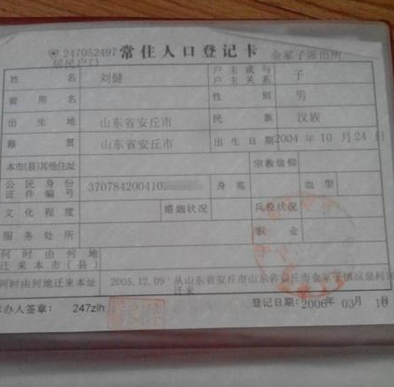 247052497 常住人口登记卡
居民户口
姓 名 刘健 户主或与户主关系 子
曾用名 性 别 男
出生地 山东省安丘市 民 族 汉族
籍 贯 山东省安丘市 出生日期 2004 年 10 月 24 日
本市(县)其他住址 宗教信仰
公民身份证件编号 370784200410 身 高 血 型
文化程度 婚姻状况 兵役状况
服务处所 职 业
何时由何地迁来本市(县)
何时由何地迁来本址 2005.12.09 从山东省安丘市山东省安丘市金冢子镇
迁来
承办人签章: 247zlh 登记日期: 2006年 03月 10